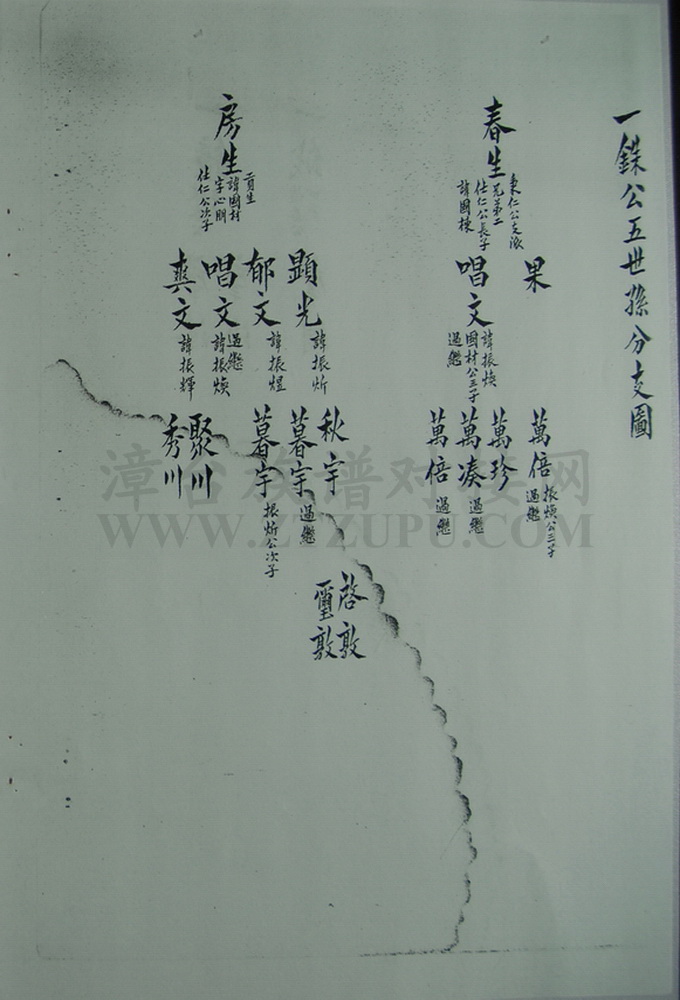 一銖公五世孫分支圖
春生
秉仁公支派
兄弟二
仕仁公長子
諱國棟
果
唱文
諱振煥
國材公三子
過繼
萬倍
振煥公三子
過繼
萬珍
萬湊
過繼
萬倍
過繼
房生
貢生
諱國材
字心朋
仕仁公次子
顯光
諱振炘
郁文
諱振煜
唱文
過繼
諱振煥
奭文
諱振輝
秋宇
暮宇
過繼
暮宇
振炘公次子
聚川
秀川
啓敦
璽敦
漳台族谱对接网
WWW.ZTZUPU.COM